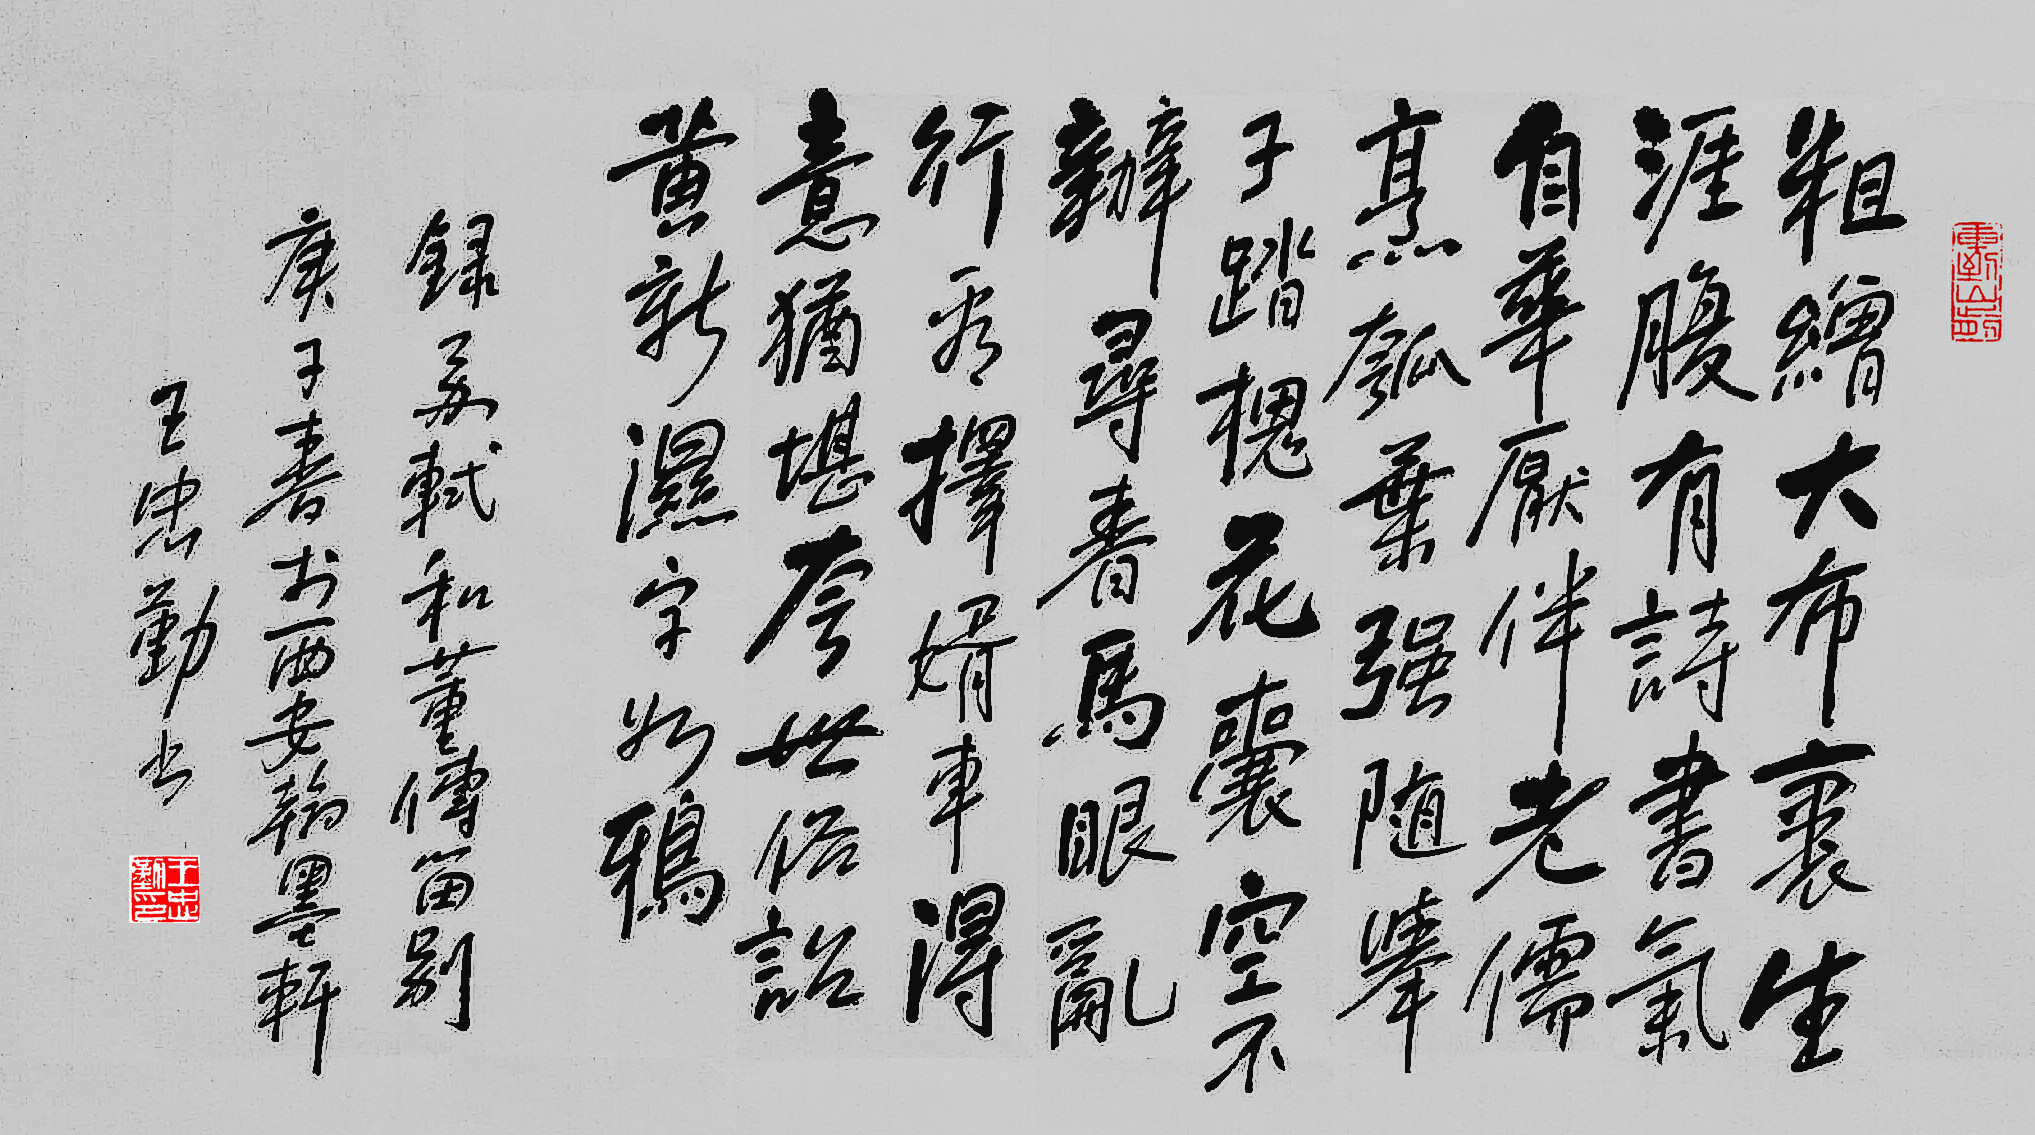 粗繒大布裹生
涯腹有詩書氣
自華厭伴老儒
烹瓠葉强随舉
子踏槐花囊空不
辦尋春馬眼亂
行看擇婿車得
意猶堪夸世俗詔
黄新濕字如鴉
録蘇軾和董傳留别
庚子春於西安翰墨軒
王忠勤书
王忠勤印